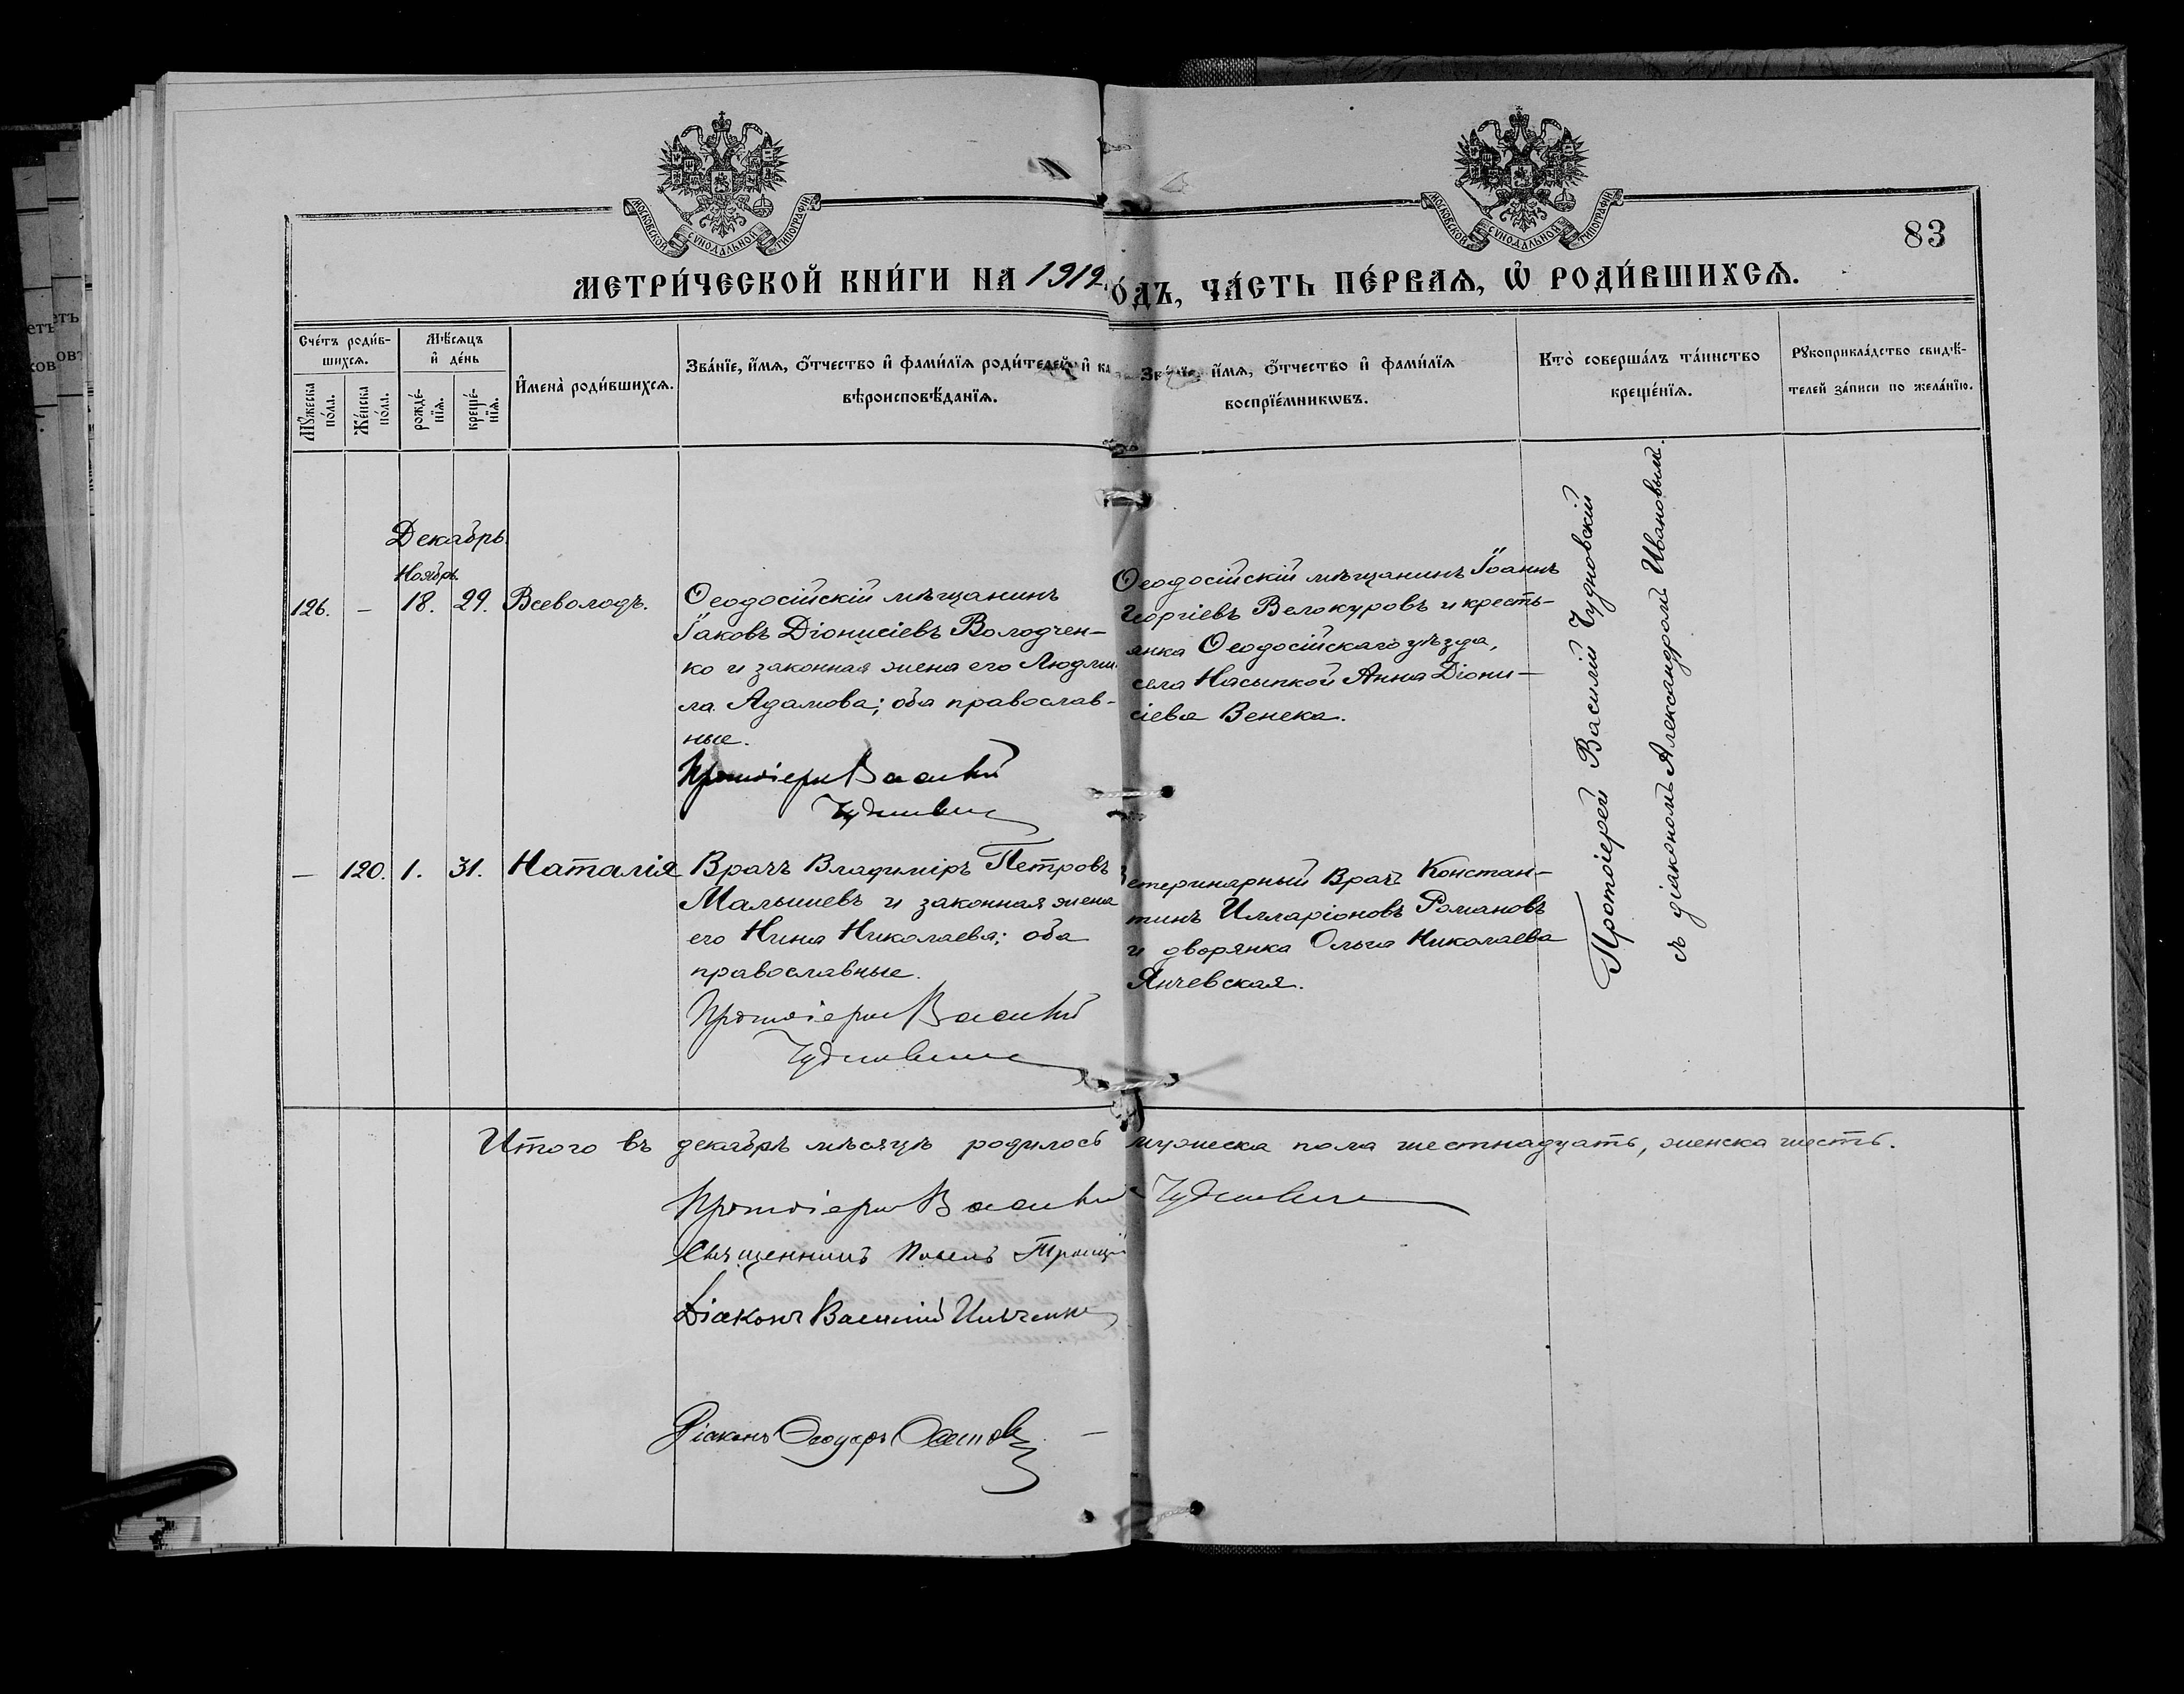 МОСКОВСКОЙ СѴНОДАЛЬНОЙ ТИПОГРАФІИ
МОСКОВСКОЙ СѴНОДАЛЬНОЙ ТИПОГРАФІИ
83
МЕТРИ́ЧЕСКОЙ КНИ́ГИ НА 1912
О́ДЪ, ЧА́СТЬ ПЕ́РВАѦ, Ѡ҆ РОДИ́ВШИХСѦ.
Сче́тъ роди́в-
шихсѧ.
Мꙋ́жеска
по́ла.
Же́нска
по́ла.
Мѣ́сѧцъ
и҆ де́нь
рожде́-
нїѧ.
креще́-
нїѧ.
И҆мена̀ роди́вшихсѧ.
Зва́нїе, и҆́мѧ, ѻ҆́тчество и҆ фами́лїѧ роди́телей, и҆ ка
вѣроисповѣ́данїѧ.
Зва́нїе, и҆́мѧ, ѻ҆́тчество и҆ фами́лїѧ
воспрїе́мникѡвъ.
Кто̀ соверша́лъ та́инство
креще́нїѧ.
Рꙋкоприкла́дство свидѣ́-
телей за́писи по жела́нїю.
Декабрь.
Ноябрь.
126. — 18. 29. Всеволодъ.
Ѳеодосійскій мѣщанинъ
Іаковъ Діонисіевъ Володчен-
ко и законная жена его Людми
ла Адамова; оба православ-
ные.
Протоіерей Василій
Чудновскій
Ѳеодосійскій мѣщанинъ Іоаннъ
Георгіевъ Велокуровъ и кресть-
янка Ѳеодосійскаго уѣзда,
села Насыпкой Анна Діони-
сіева Венека.
Протоіерей Василій Чудновскій
съ діакономъ Александромъ Ивановымъ.
— 120. 1. 31. Наталія
Врачъ Владиміръ Петровъ
Малышевъ и законная жена
его Нина Николаева; оба
православные.
Протоіерей Василій
Чудновскій
Ветеринарный Врачъ Констан-
тинъ Илларіоновъ Романовъ
и дворянка Ольга Николаева
Янчевская.
Итого въ декабрѣ мѣсяцѣ родилось мужеска пола шестнадцать, женска шесть.
Протоіерей Василій Чудновскій
Священникъ Павелъ Троицкій
Діаконъ Василій
Діаконъ Ѳеодоръ